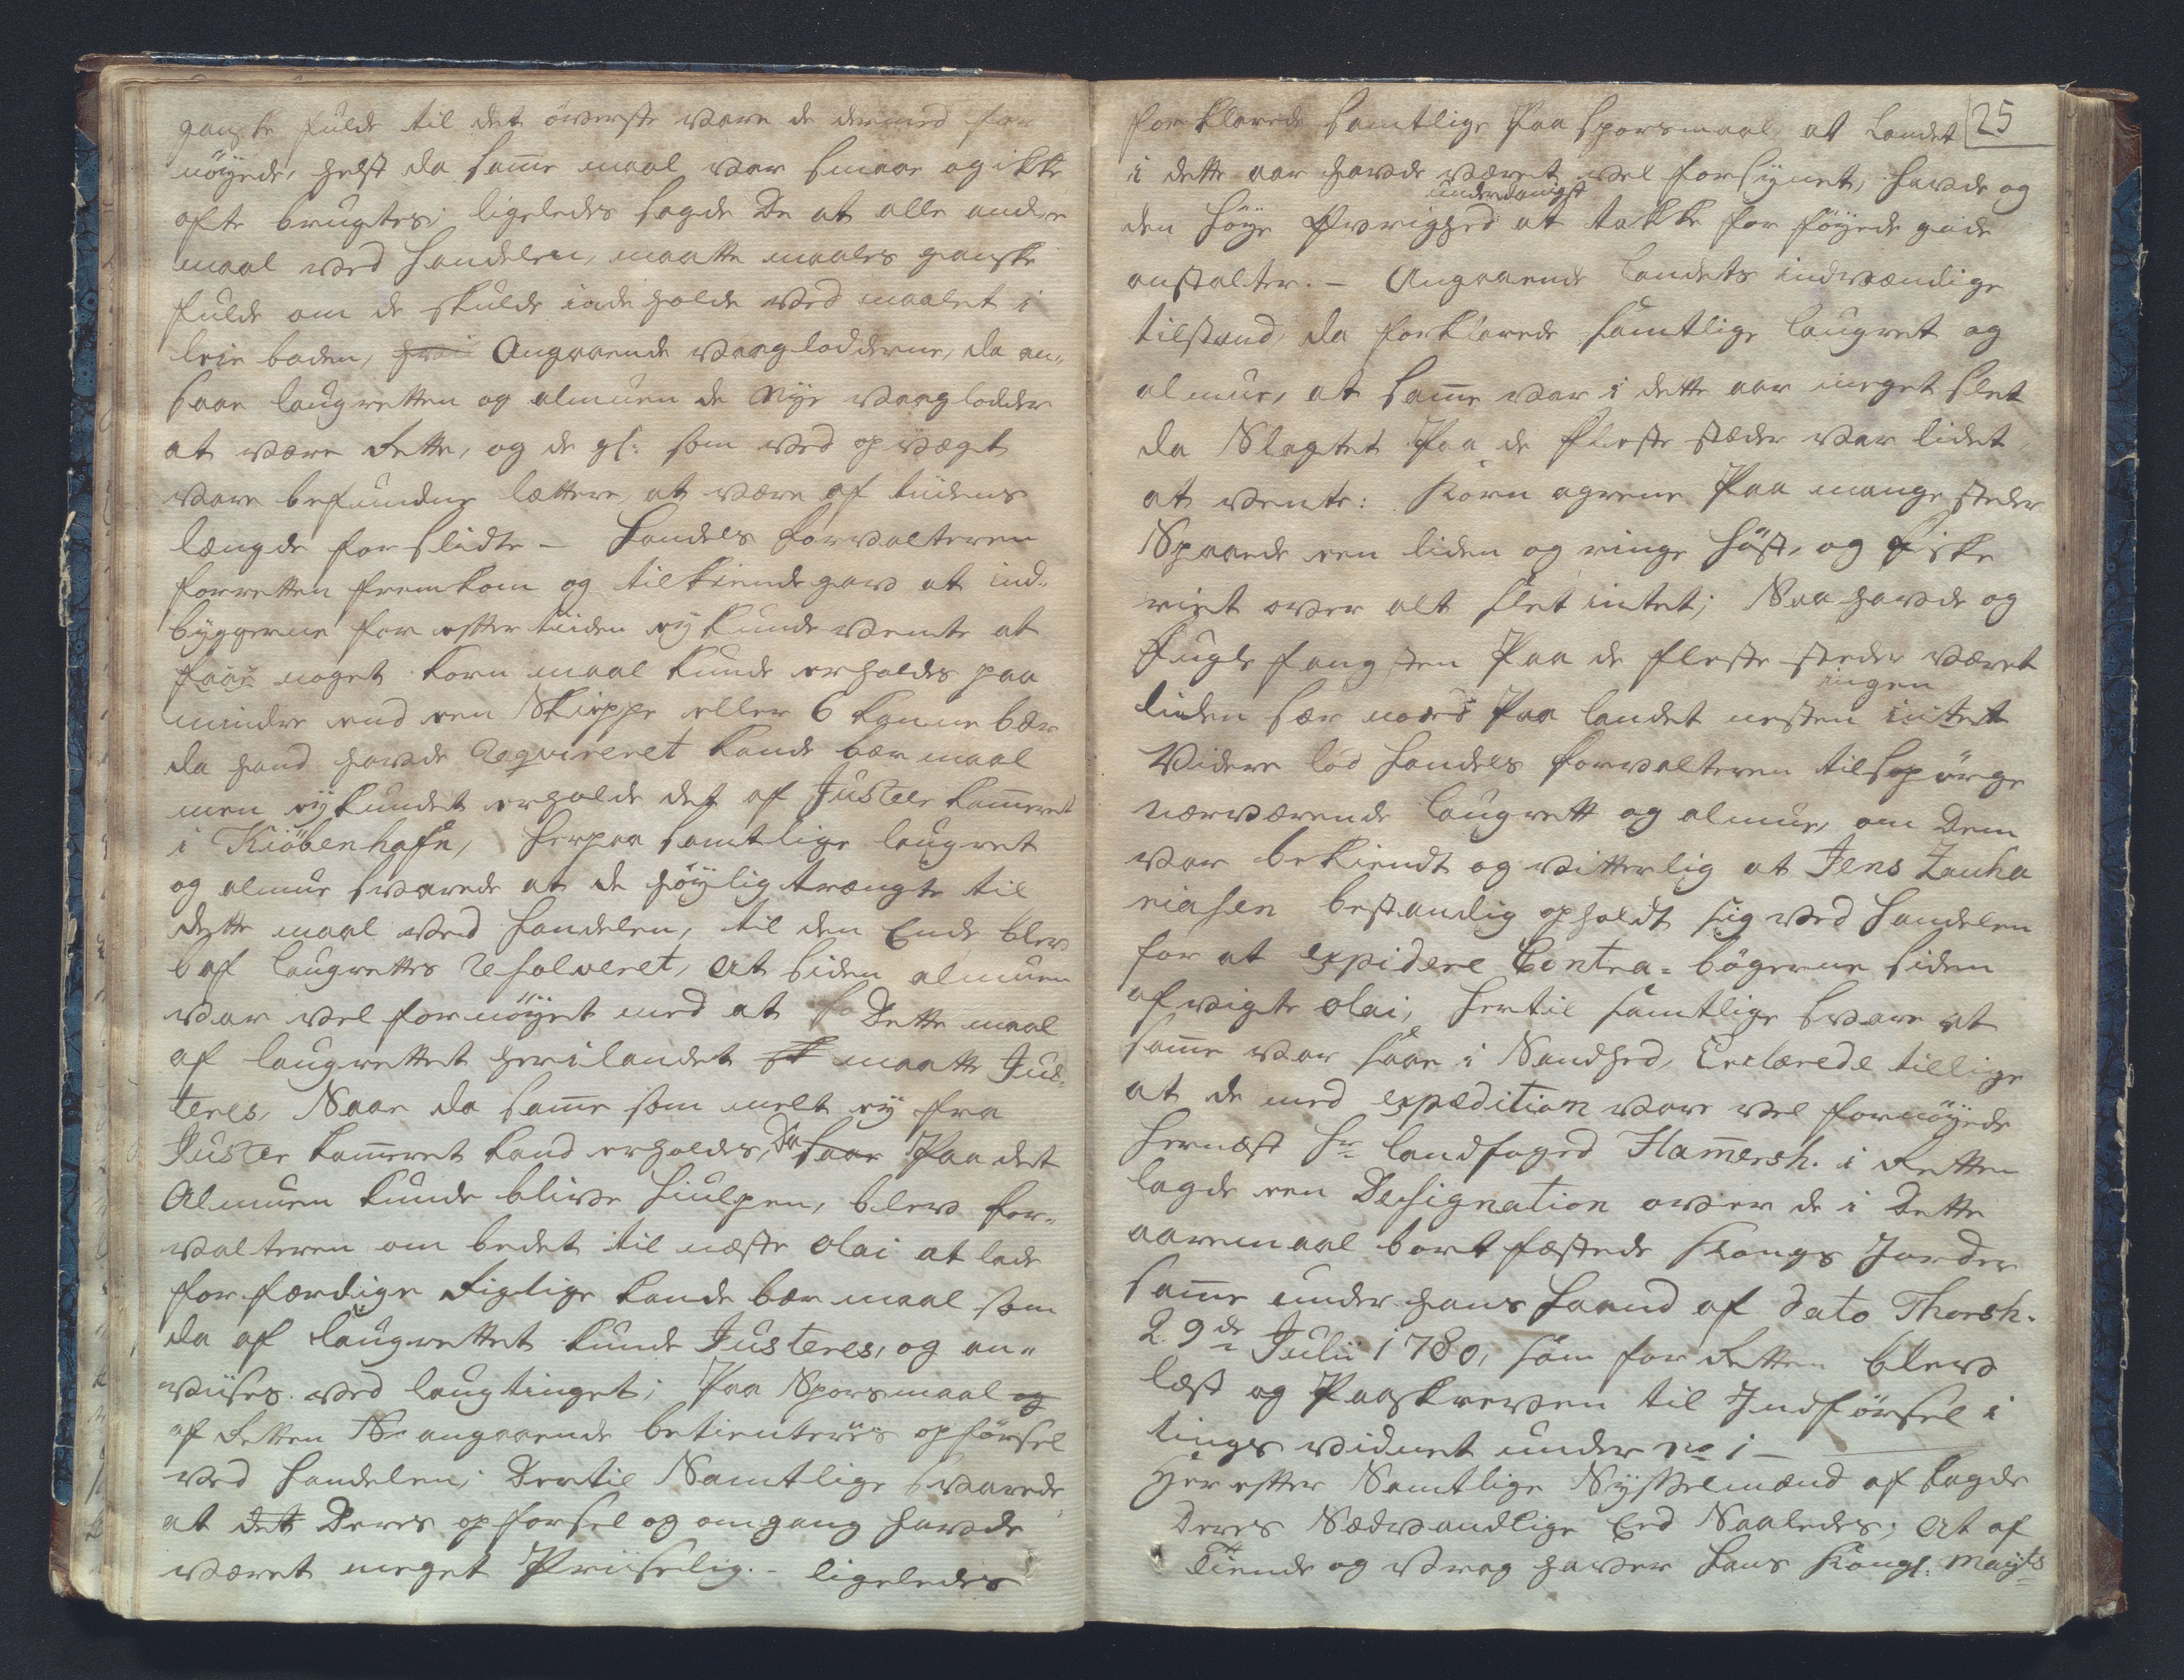 ganske fulde til det överste vare de dermed for
nöyede, helst da samme maal var smaae og ikke
ofte brugtes; ligeledes sagde De at alle andre
maal ved Handelen, maatte maales ganske
fulde om de skulde inde holde ved maalet i
leie boden, Angaaende vaaglodderne, da an„
saae laugretten og almuen de Nye vaaglodder
at være Rette, og de gl: som ved opvæget
vare befundne lættere at være af tiidens
længde forslidte – Handels forvalteren
for retten fremkom og tilkiendegav at ind„
byggerne for eftertiiden ey kunde vente at
faae noget korn maal kunde erholdes paa
mindre end een Skieppe eller 6 kanne bær
da hand havde Reqvireret kande bær maal
men ey kundet erholde det af Justeer kammeret
i Kiöbenhafn, herpaa samtlige laugret
og almue svarede at de höylig trængte til
dette maal ved Handelen, til den Ende blev
af laugrettes Resolveret, at siden almuen
var vel fornöyet med at Dette maal
af laugrettet her i landet maatte Jus„
teres, Naar da samme som melt ey fra
Juster kammeret kand erholdes, Da saae Paa det
Almuen kunde blive hiulpen, blev for„
valteren om bedet til næste olai at lade
forfærdige Rigtige kande bær maal som
da af laugrettet kunde Justeres, og an„
viises ved laugtinget; Paa Spørsmaal og
af Retten angaaende betienteriis opförsel
ved Handelen; Dertil Samtlige svarede
at det Deres opforsel og omgang havde
været meget Priiselig. – ligeledes
25
forklarede samtlige Paa sporsmaal at Landet
i dette aar havde været vel forsynet, havde og
underdanigst
den höye Øvrighed at takke for föyede gode
anstalter. – Angaaende Landets indvændige
tilstand, da forklarede samtlige laugret og
almue, at samme var i dette aar meget slet
da Slagtet Paa de fleste stæder var lidet
at vente: Korn agrene Paa mange steder
Spaaede een liden og ringe höst, og Fiske
riet over alt slet intet; Saa havde og
Fugle fangsten Paa de fleste steder været
ingen
liiden sær nord Paa landet nesten intet
Videre lod Handels forvalteren tilspörge
nærværende laugrett og almue, om Dem
var bekiendt og vitterlig at Jens Zacha
riasen bestandig opholdt sig ved Handelen
for at expidere Contra= bögerne siden
afvigte olai; hertil samtlige svare at
samme var saae i Sandhed, Erclærede tillige
at de med expædition vare vel fornöyede
Hernæst Hr landfoged Hamersh. i Retten
lagde een Designation over de i Dette
aaremaal bort fæstede Kongs Jorder
samme under hans Haand af dato Thorsh.
29de Julii 1780, som for Retten blev
læst og Paaskreven til Indförsel i
tings vidnet under no 1 –
Herefter Samtlige Sysselmænd af lagde
Deres Sædvandlige Eed Saaledes; At af
Tiende og vrag haver hans Kongl. Mayts